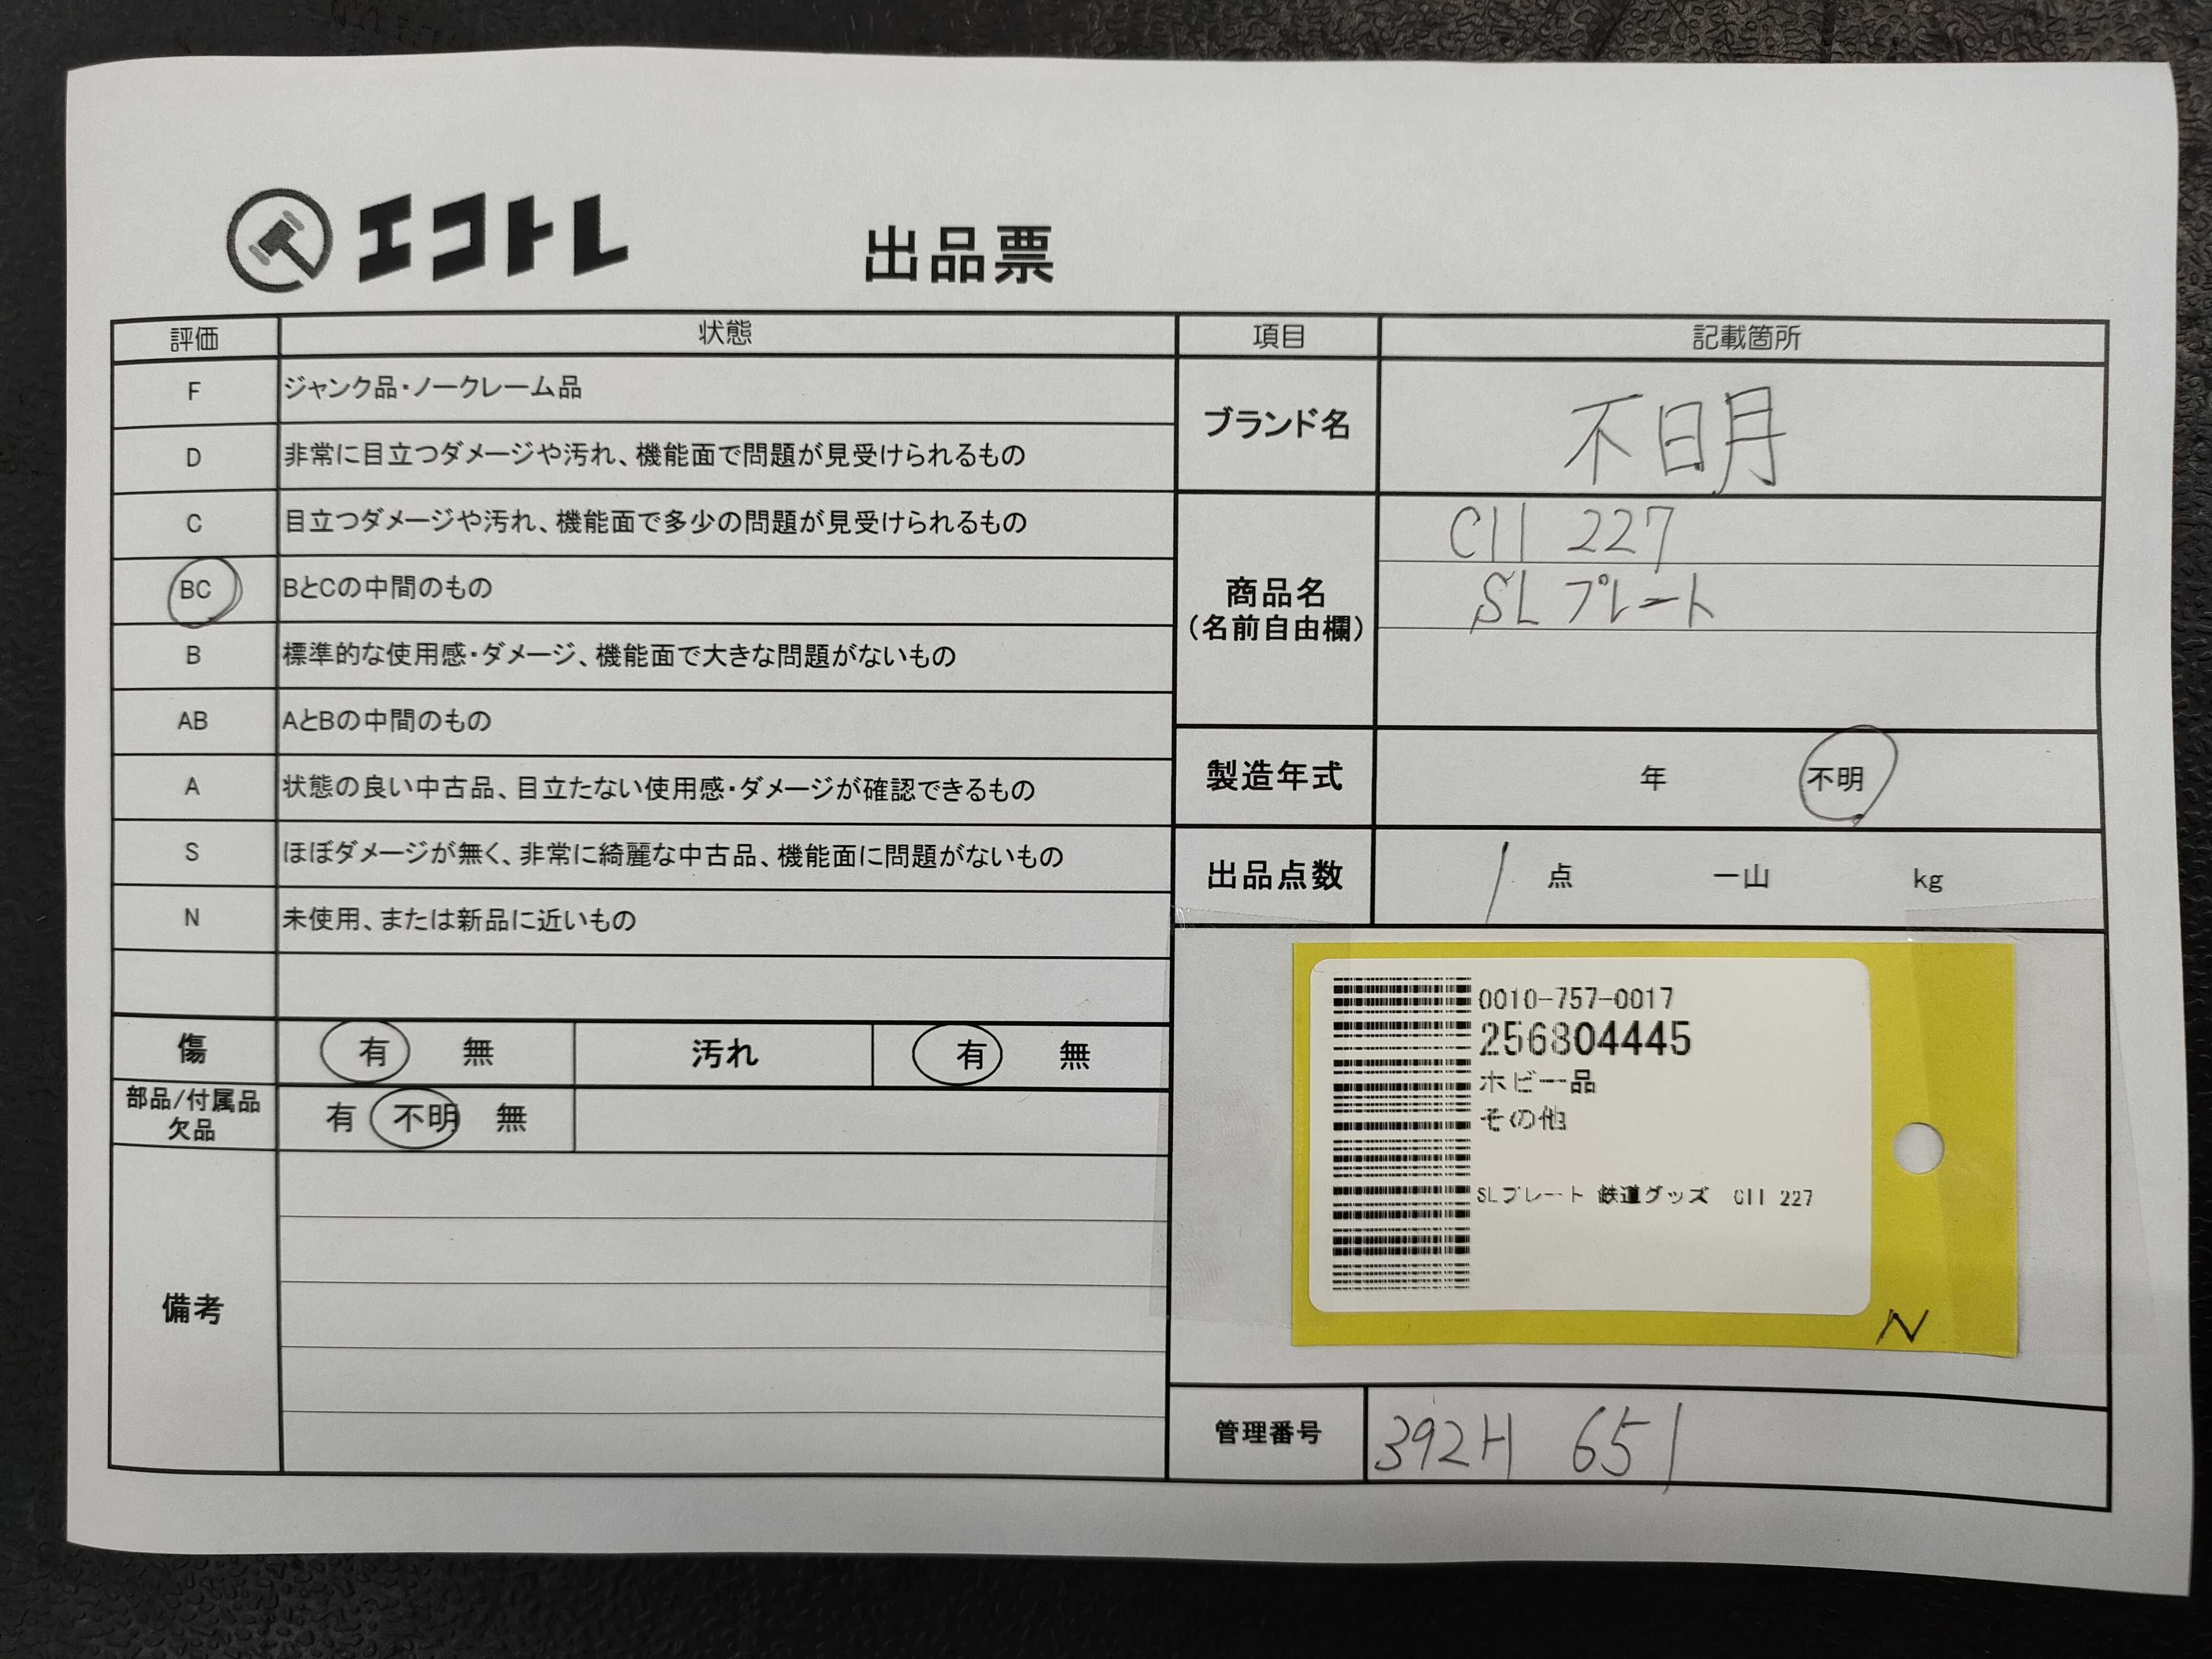 エコトレ
出品票
評価 状態
F ジャンク品・ノークレーム品
D 非常に目立つダメージや汚れ、機能面で問題が見受けられるもの
C 目立つダメージや汚れ、機能面で多少の問題が見受けられるもの
BC BとCの中間のもの
B 標準的な使用感・ダメージ、機能面で大きな問題がないもの
AB AとBの中間のもの
A 状態の良い中古品、目立たない使用感・ダメージが確認できるもの
S ほぼダメージが無く、非常に綺麗な中古品、機能面に問題がないもの
N 未使用、または新品に近いもの
傷 有 無 汚れ 有 無
部品/付属品
欠品
有 不明 無
備考
項目 記載箇所
ブランド名 不明
商品名
(名前自由欄)
C11 227
SLプレート
製造年式 年 不明
出品点数 1 点 一山 kg
0010-757-0017
256804445
ホビー品
その他
SLプレート 鉄道グッズ C11 227
N
管理番号 392H 651